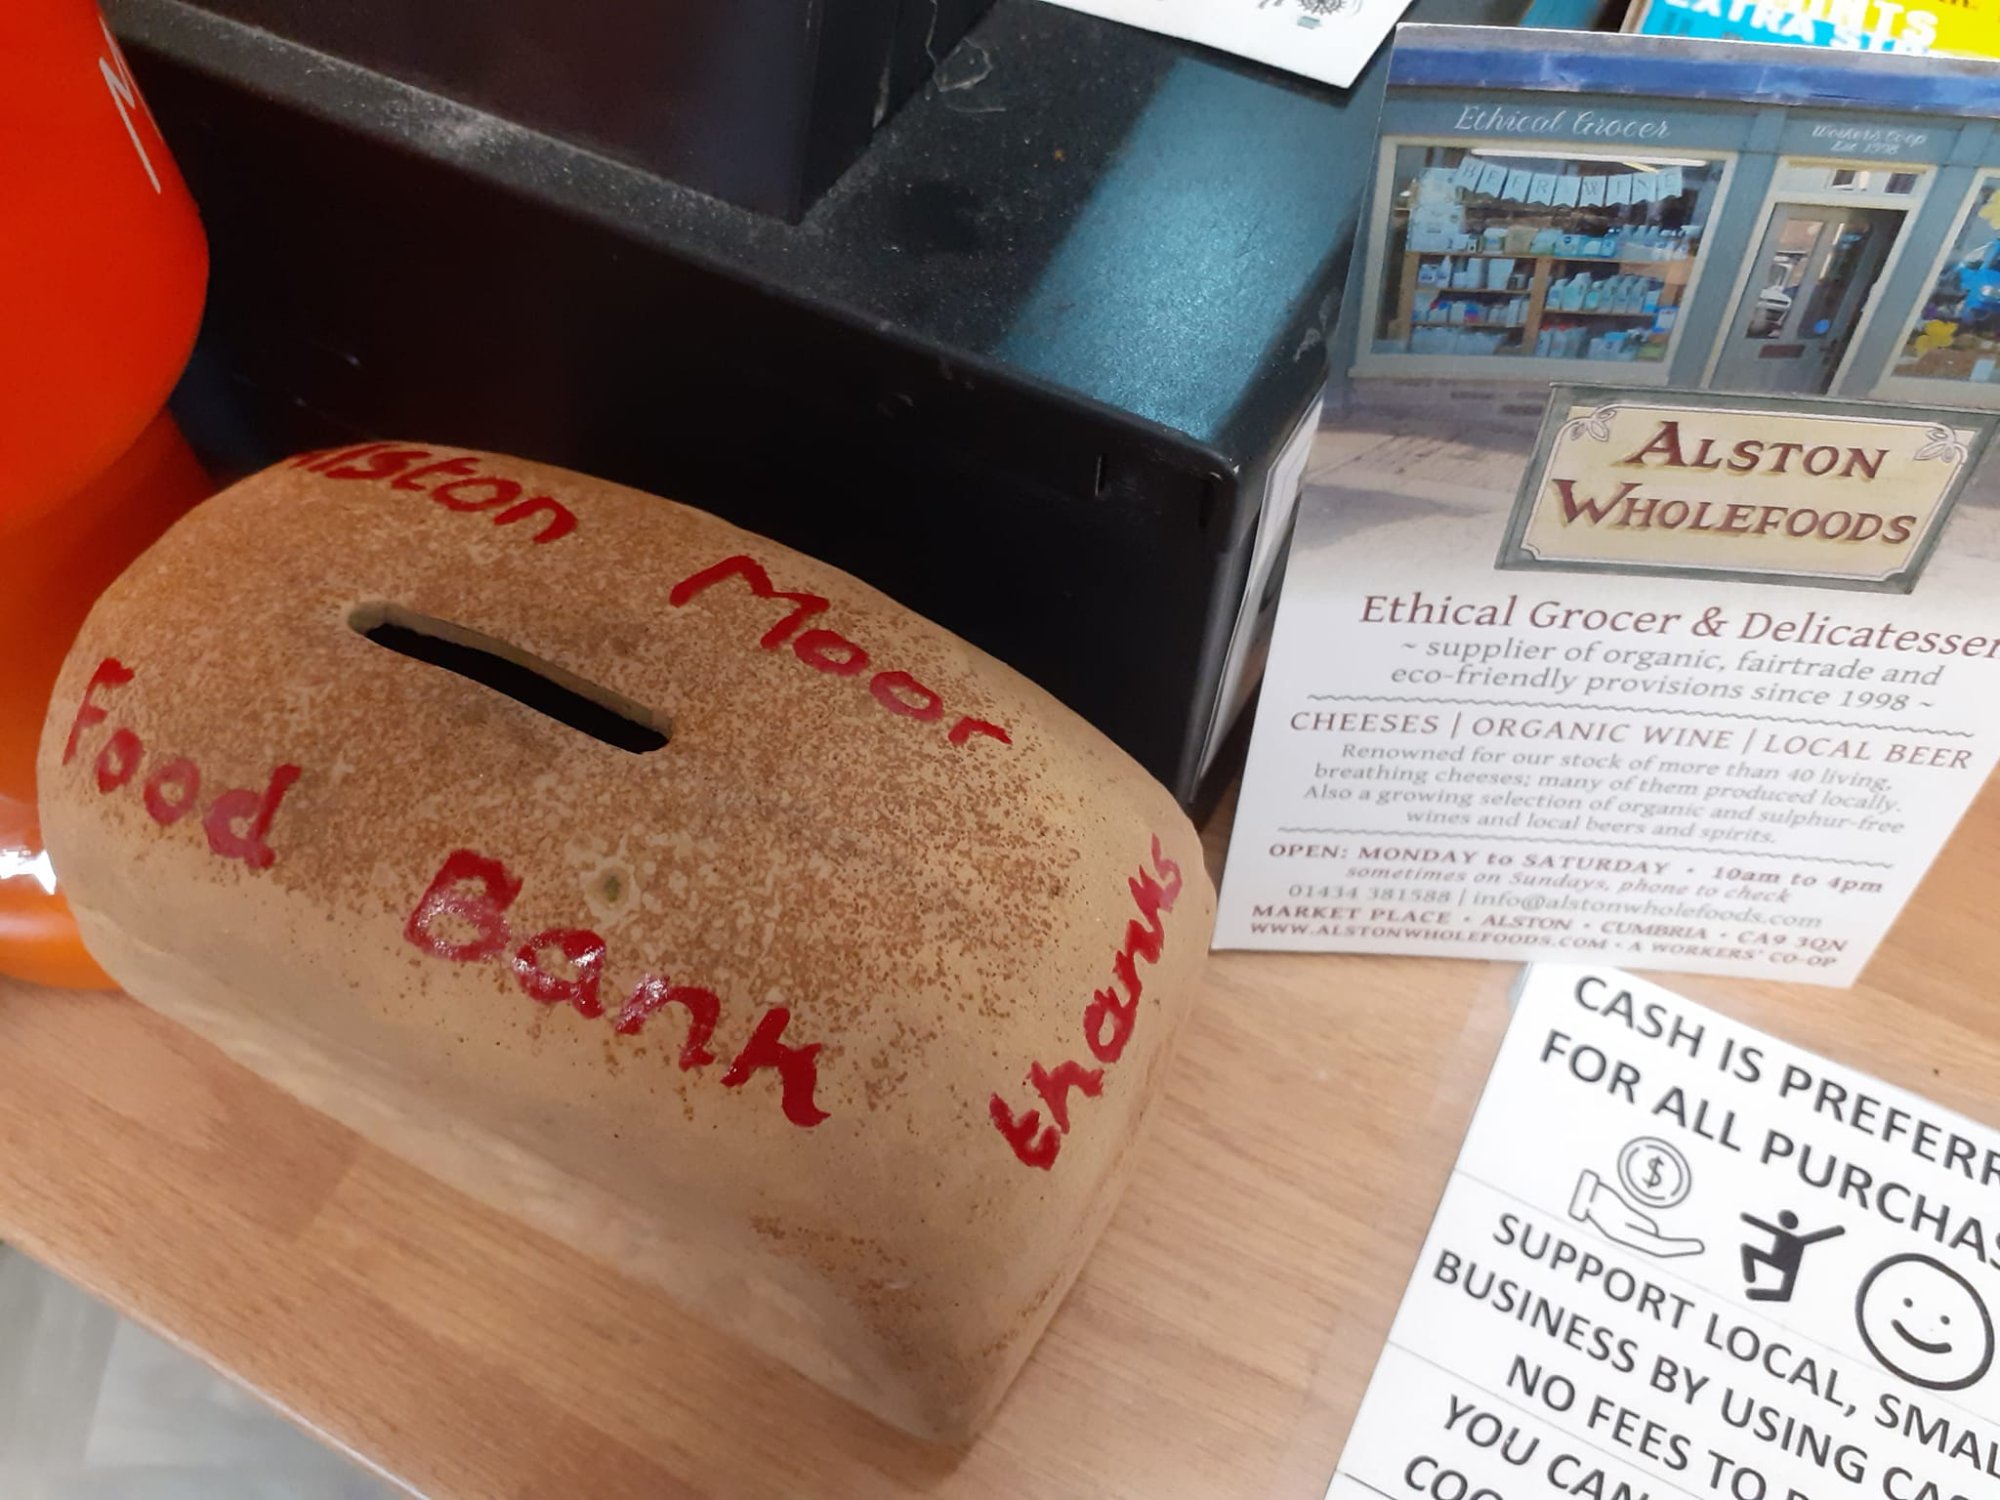 M
EXTRA
Ethical Grocer
Workers Coop
Est 1998
BEER & WINE
ALSTON
WHOLEFOODS
Ethical Grocer & Delicatessen
~ supplier of organic, fairtrade and
eco-friendly provisions since 1998 ~
CHEESES | ORGANIC WINE | LOCAL BEER
Renowned for our stock of more than 40 living,
breathing cheeses; many of them produced locally.
Also a growing selection of organic and sulphur-free
wines and local beers and spirits.
OPEN: MONDAY to SATURDAY • 10am to 4pm
sometimes on Sundays, phone to check
01434 381588 | info@alstonwholefoods.com
MARKET PLACE • ALSTON • CUMBRIA • CA9 3QN
WWW.ALSTONWHOLEFOODS.COM • A WORKERS' CO-OP
Alston Moor
Food Bank
thanks
CASH IS PREFERR
FOR ALL PURCHAS
$
SUPPORT LOCAL, SMAL
BUSINESS BY USING CAS
NO FEES TO
YOU CAN